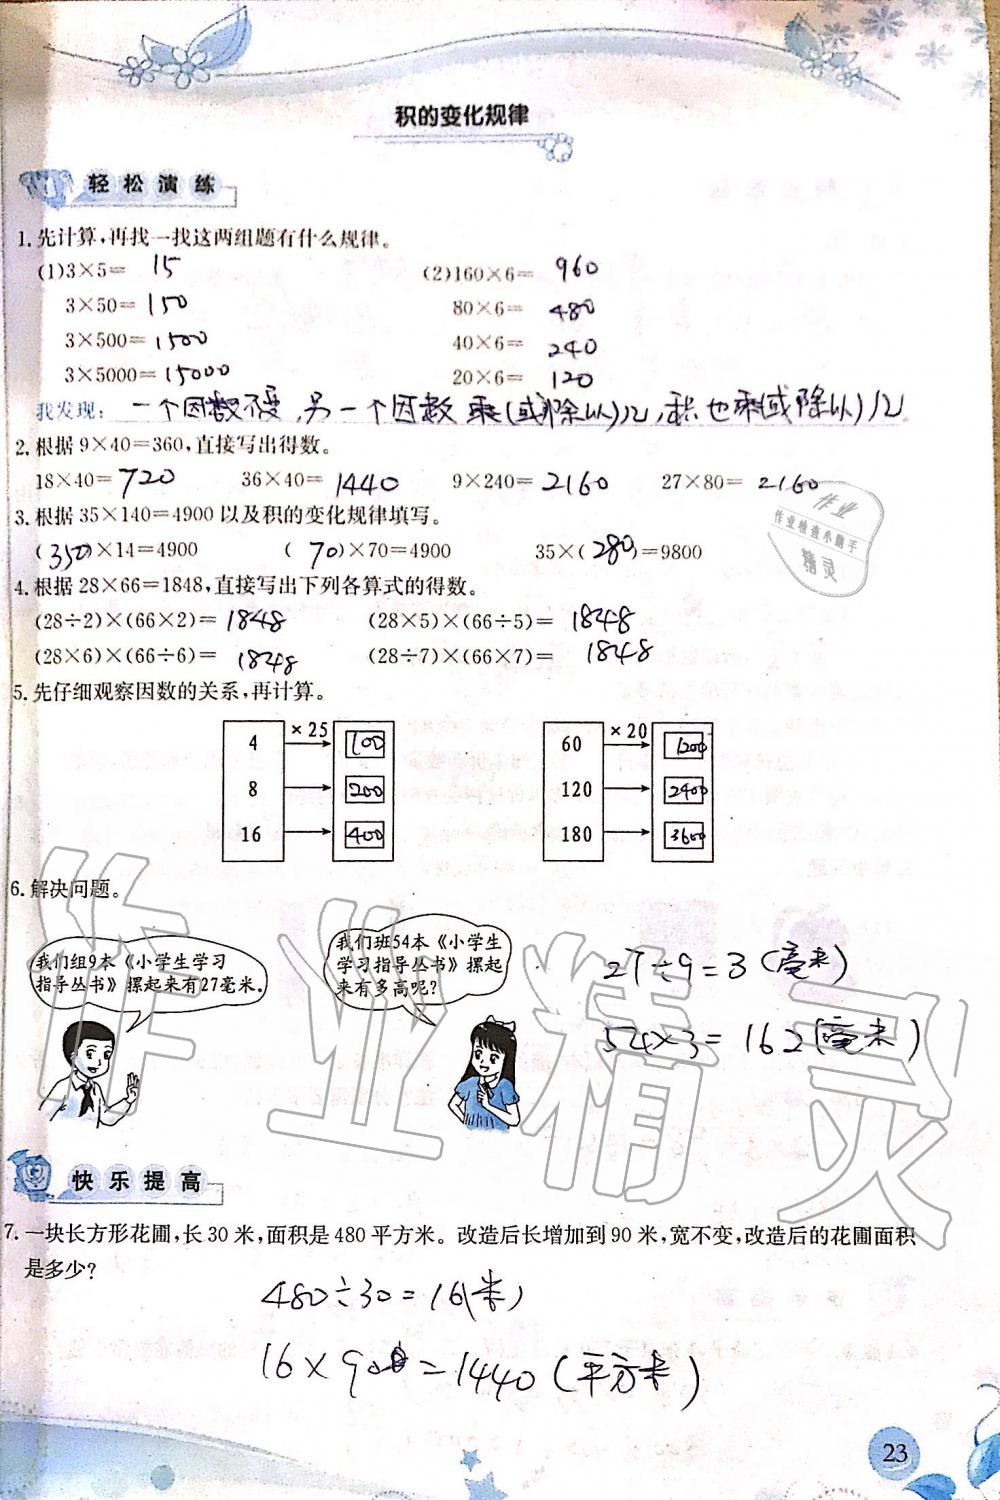 积的变化规律
轻松演练
1.先计算,再找一找这两组题有什么规律。
(1)3×5= 15 (2)160×6= 960
3×50= 150 80×6= 480
3×500= 1500 40×6= 240
3×5000= 15000 20×6= 120
我发现: 一个因数不变,另一个因数乘(或除以)几,积也乘(或除以)几
2.根据9×40=360,直接写出得数。
18×40= 720 36×40= 1440 9×240= 2160 27×80= 2160
3.根据35×140=4900以及积的变化规律填写。
(350)×14=4900 (70)×70=4900 35×(280)=9800
4.根据28×66=1848,直接写出下列各算式的得数。
(28÷2)×(66×2)= 1848 (28×5)×(66÷5)= 1848
(28×6)×(66÷6)= 1848 (28÷7)×(66×7)= 1848
5.先仔细观察因数的关系,再计算。
×25 ×20
4 100 60 1200
8 200 120 2400
16 400 180 3600
6.解决问题。
我们组9本《小学生学习
指导丛书》摞起来有27毫米。
我们班54本《小学生
学习指导丛书》摞起
来有多高呢?
27÷9=3(毫米)
54×3=162(毫米)
快乐提高
7.一块长方形花圃,长30米,面积是480平方米。改造后长增加到90米,宽不变,改造后的花圃面积
是多少?
480÷30=16(米)
16×90=1440(平方米)
23
作业
作业检查小助手
精灵
作业精灵